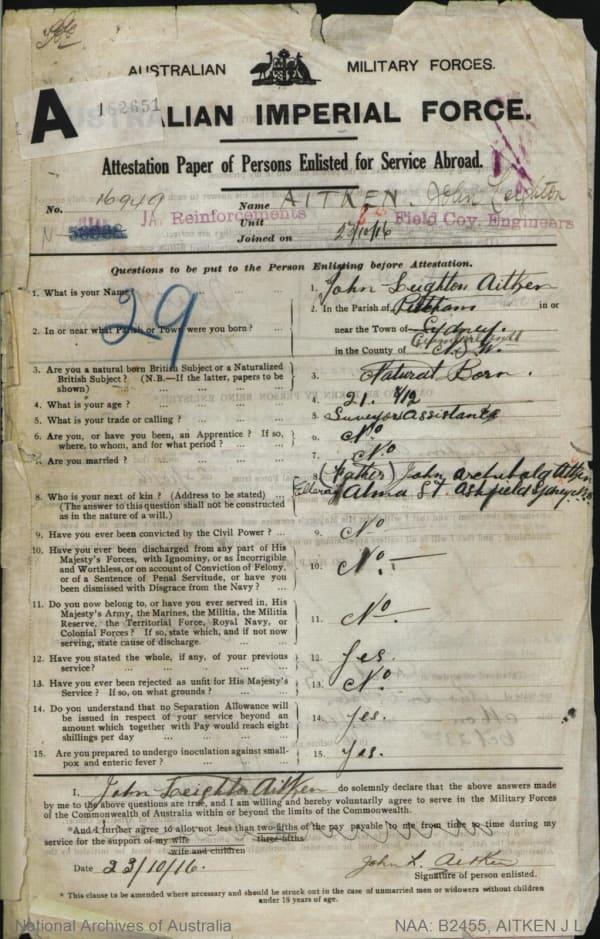 AUSTRALIAN MILITARY FORCES.
A 162651
LIAN IMPERIAL FORCE.
Attestation Paper of Persons Enlisted for Service Abroad.
No. 16949 Name AITKEN. John Leighton
JA. Reinforcements Unit Field Coy. Engineers
Joined on 23/10/16
Questions to be put to the Person Enlisting before Attestation.
29
1. What is your Name ... ... ... 1. John Leighton Aitken
2. In or near what Parish or Town were you born? ... 2. In the Parish of Petersham in or
near the Town of Sydney.
in the County of Cumberland
N.S.W.
3. Are you a natural born British Subject or a Naturalized
British Subject? (N.B.—If the latter, papers to be
shown) ... ... ... 3. Natural Born.
4. What is your age? ... ... ... 4. 21.
5. What is your trade or calling? ... ... 5. Surveyors Assistant
6. Are you, or have you been, an Apprentice? If so,
where, to whom, and for what period? ... ... 6. No
7. Are you married? ... ... ... 7. No
8. Who is your next of kin? (Address to be stated) ...
(The answer to this question shall not be construed
as in the nature of a will.) 8. (Father) John Archibald Aitken
Alma St. Ashfield Sydney
9. Have you ever been convicted by the Civil Power? ... 9. No
10. Have you ever been discharged from any part of His
Majesty's Forces, with Ignominy, or as Incorrigible
and Worthless, or on account of Conviction of Felony,
or of a Sentence of Penal Servitude, or have you
been dismissed with Disgrace from the Navy? ... 10. No.
11. Do you now belong to, or have you ever served in, His
Majesty's Army, the Marines, the Militia, the Militia
Reserve, the Territorial Force, Royal Navy, or
Colonial Forces? If so, state which, and if not now
serving, state cause of discharge. ... ... 11. No.
12. Have you stated the whole, if any, of your previous
service? ... ... ... 12. Yes.
13. Have you ever been rejected as unfit for His Majesty's
Service? If so, on what grounds? ... ... 13. No.
14. Do you understand that no Separation Allowance will
be issued in respect of your service beyond an
amount which together with Pay would reach eight
shillings per day ... ... ... 14. Yes.
15. Are you prepared to undergo inoculation against small-
pox and enteric fever? ... ... ... 15. Yes.
I, John Leighton Aitken do solemnly declare that the above answers made
by me to the above questions are true, and I am willing and hereby voluntarily agree to serve in the Military Forces
of the Commonwealth of Australia within or beyond the limits of the Commonwealth.
*And I further agree to allot not less than two-fifths of the pay payable to me from time to time during my
three-fifths
service for the support of my wife
wife and children
Date 23/10/16. John L. Aitken
Signature of person enlisted.
* This clause to be amended where necessary and should be struck out in the case of unmarried men or widowers without children
under 18 years of age.
National Archives of Australia NAA: B2455, AITKEN J L